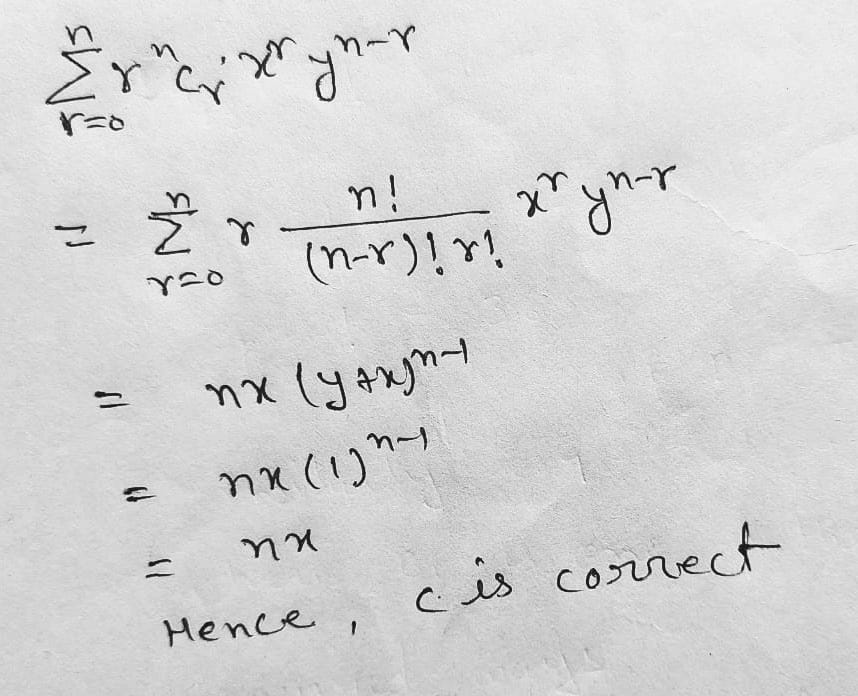 \sum_{r=0}^{n} r ^{n}C_{r} x^{r} y^{n-r}
= \sum_{r=0}^{n} r \frac{n!}{(n-r)! r!} x^{r} y^{n-r}
= nx (y+x)^{n-1}
= nx (1)^{n-1}
= nx
Hence, c is correct